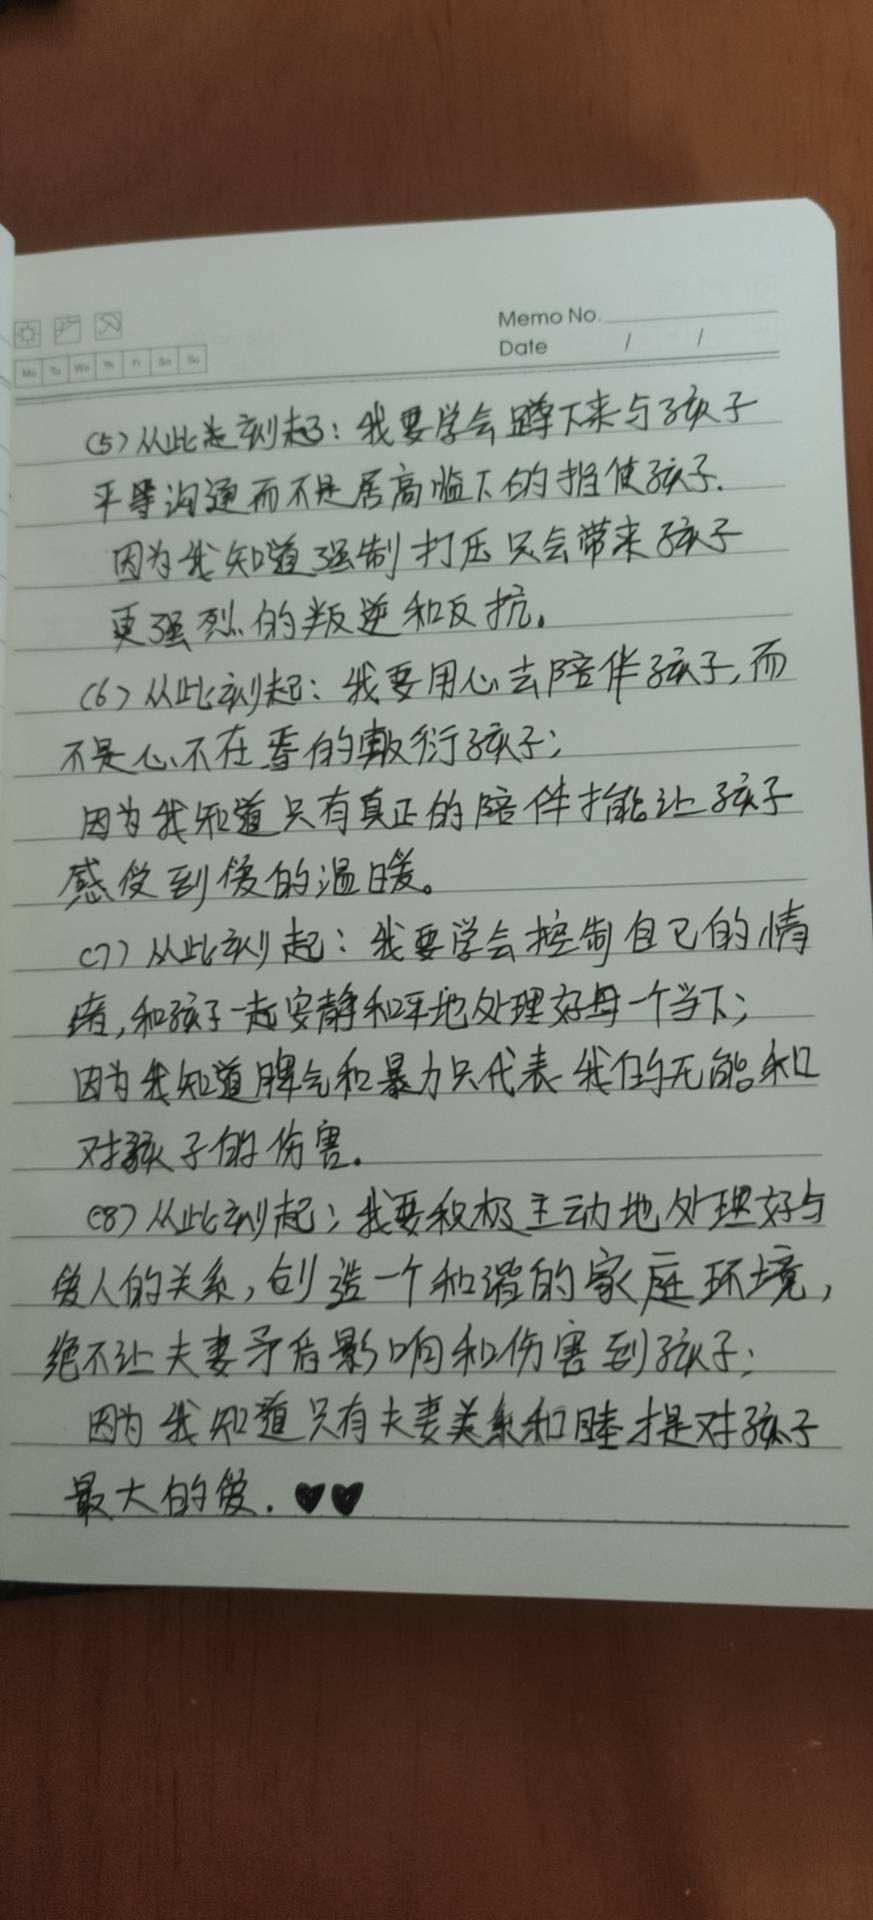 Memo No.
Date / /
Mo Tu We Th Fr Sa Su
(5)从此刻起：我要学会蹲下来与孩子
平等沟通而不是居高临下的指使孩子.
因为我知道强制打压只会带来孩子
更强烈的叛逆和反抗。
(6)从此刻起：我要用心去陪伴孩子,而
不是心不在焉的敷衍孩子;
因为我知道只有真正的陪伴才能让孩子
感受到爱的温暖。
(7)从此刻起：我要学会控制自己的情
绪,和孩子一起安静和平地处理好每一个当下;
因为我知道脾气和暴力只代表我们的无能和
对孩子的伤害.
(8)从此刻起;我要积极主动地处理好与
爱人的关系,创造一个和谐的家庭环境,
绝不让夫妻矛盾影响和伤害到孩子;
因为我知道只有夫妻关系和睦才是对孩子
最大的爱.♥♥